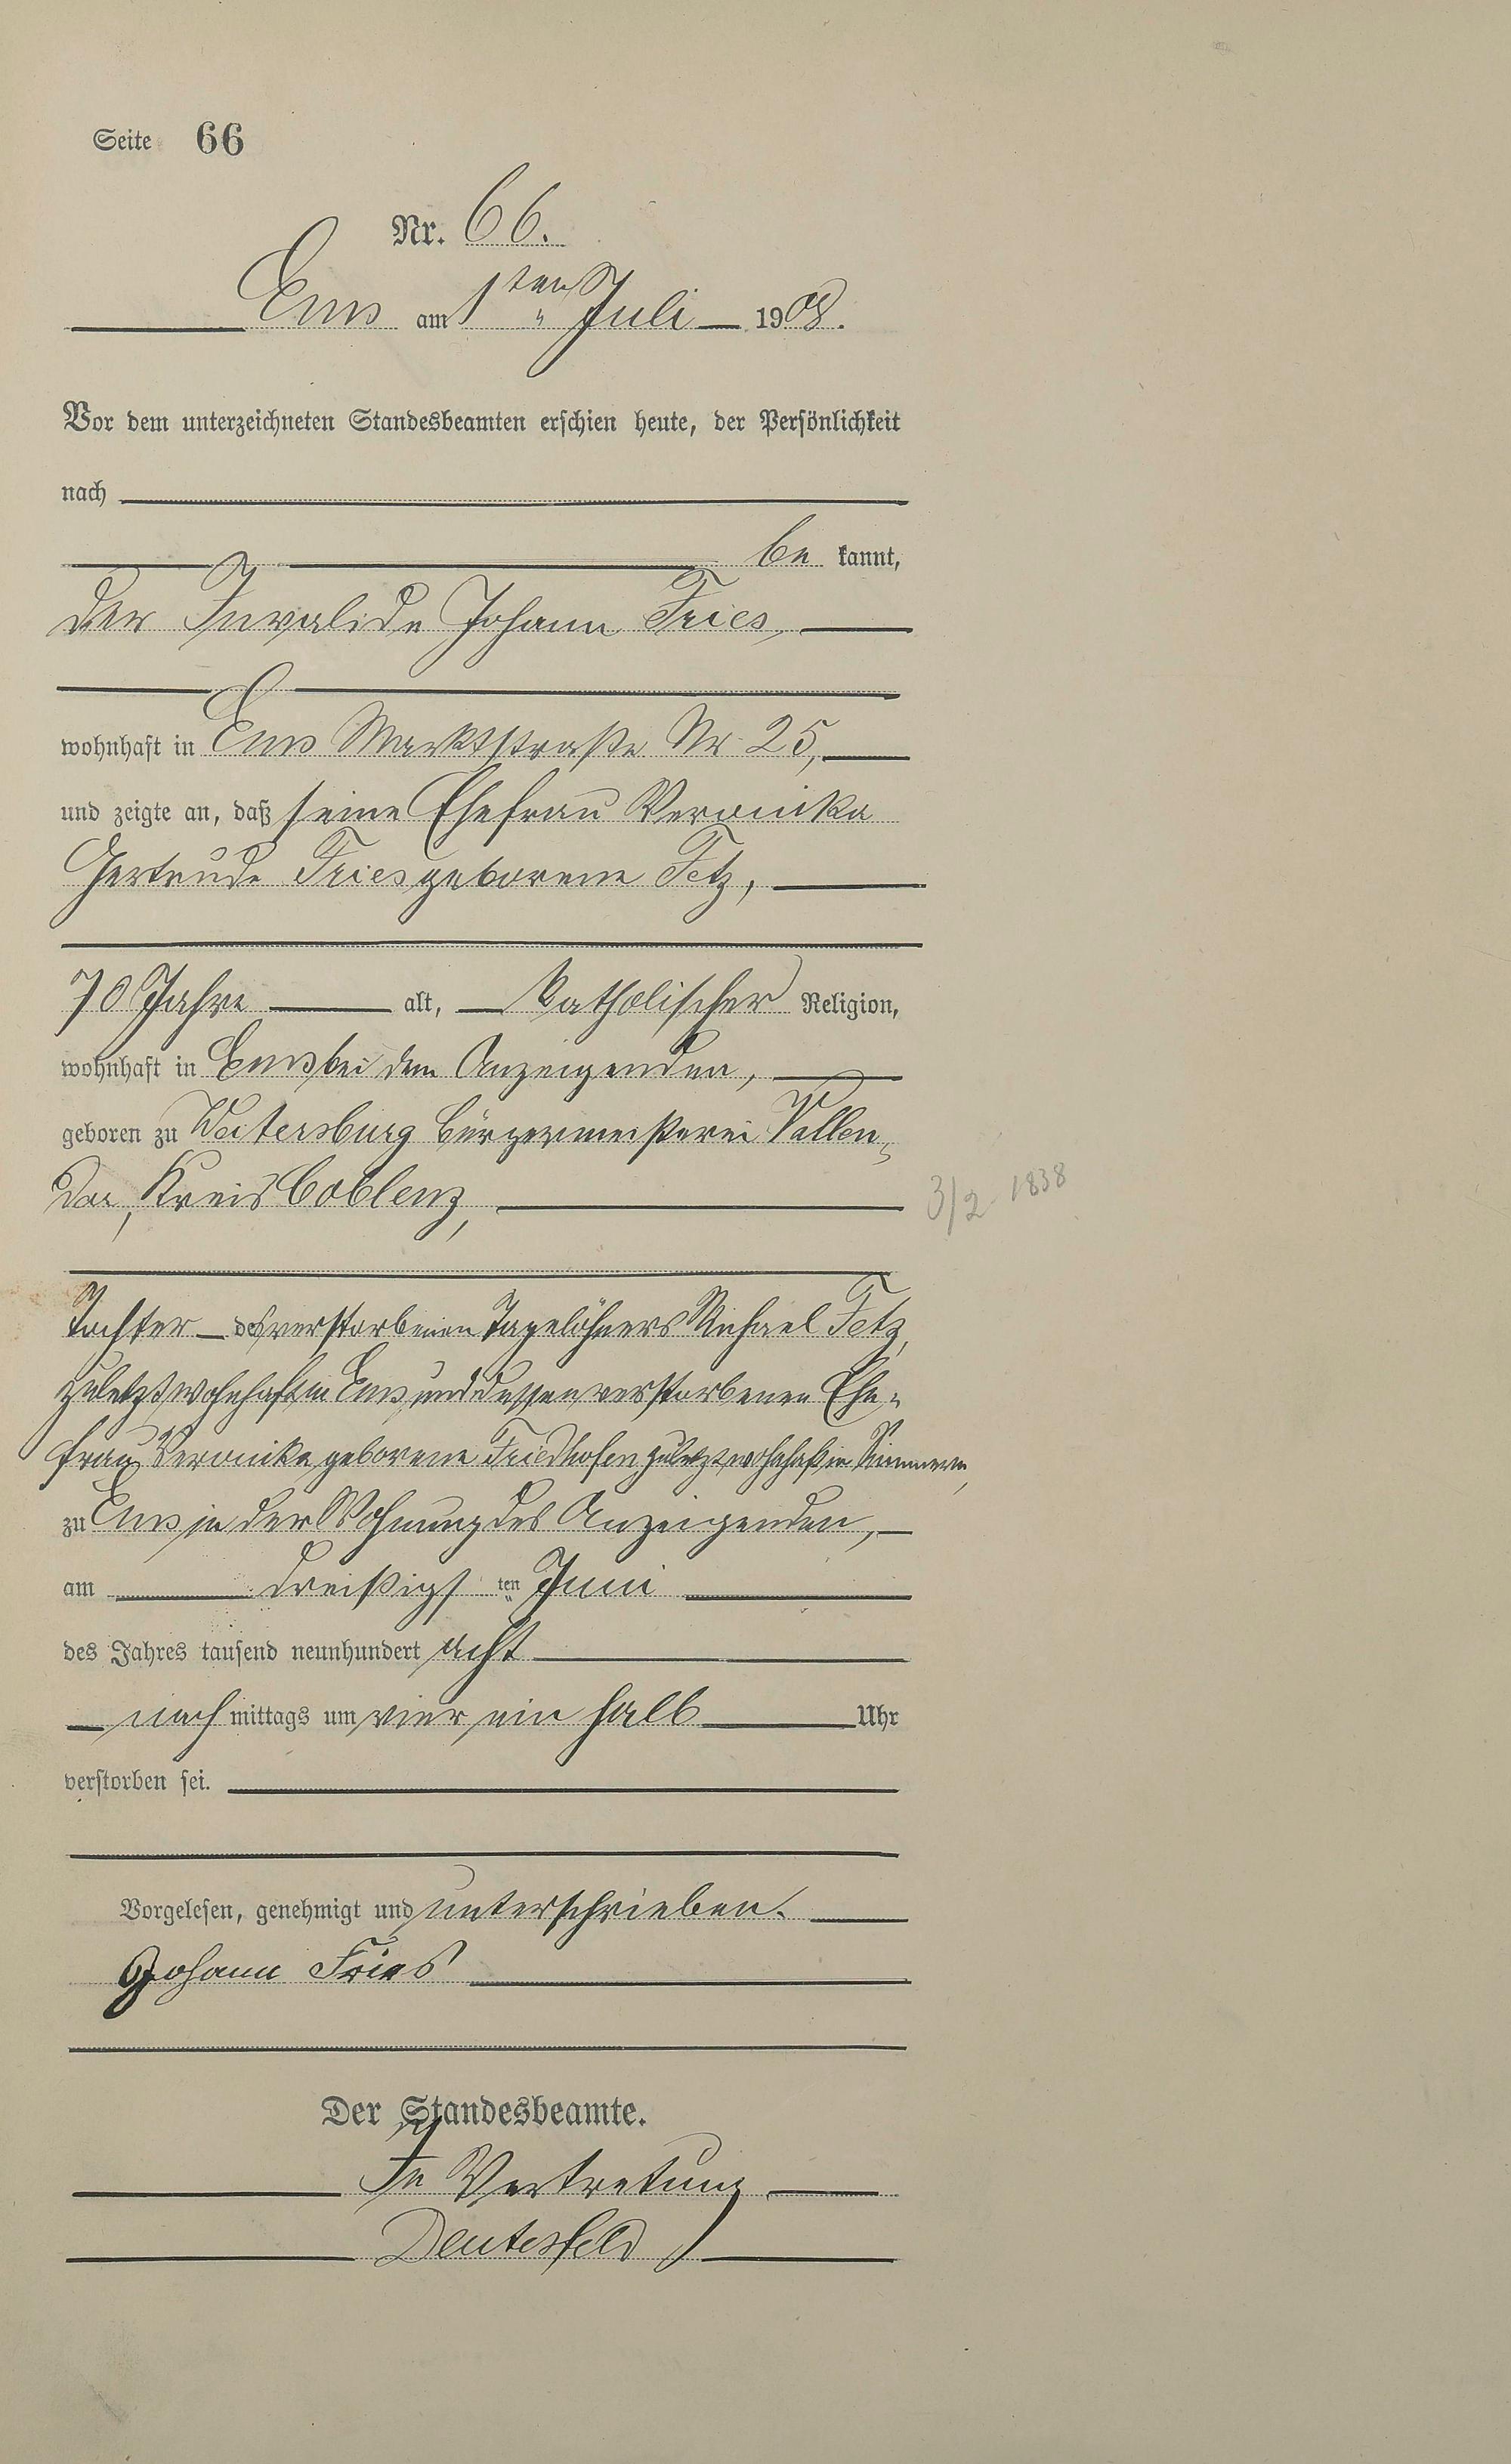 Seite 66
Nr. 66.
Ems am 1ten Juli 1908.
Vor dem unterzeichneten Standesbeamten erschien heute, der Persönlichkeit
nach
be kannt,
der Invalide Johann Fries,
wohnhaft in Ems Marktstraße Nr 25,
und zeigte an, daß seine Ehefrau Veronika
Gertrude Fries geborene Fetz,
70 Jahre alt, katholischer Religion,
wohnhaft in Ems bei dem Anzeigenden,
geboren zu Weitersburg Bürgermeisterei Vallen-
dar, Kreis Coblenz,
3/2 1838
Tochter des verstorbenen Tagelöhners Michael Fetz,
zuletzt wohnhaft in Ems und dessen verstorbenen Ehe-
frau Veronika geborene Friedhofen zuletzt wohnhaft in Simmern,
zu Ems in der Wohnung des Anzeigenden,
am dreißigsten Juni
des Jahres tausend neunhundert acht
nach mittags um vier ein halb Uhr
verstorben sei.
Vorgelesen, genehmigt und unterschrieben.
Johann Fries
Der Standesbeamte.
In Vertretung
Deutesfeld